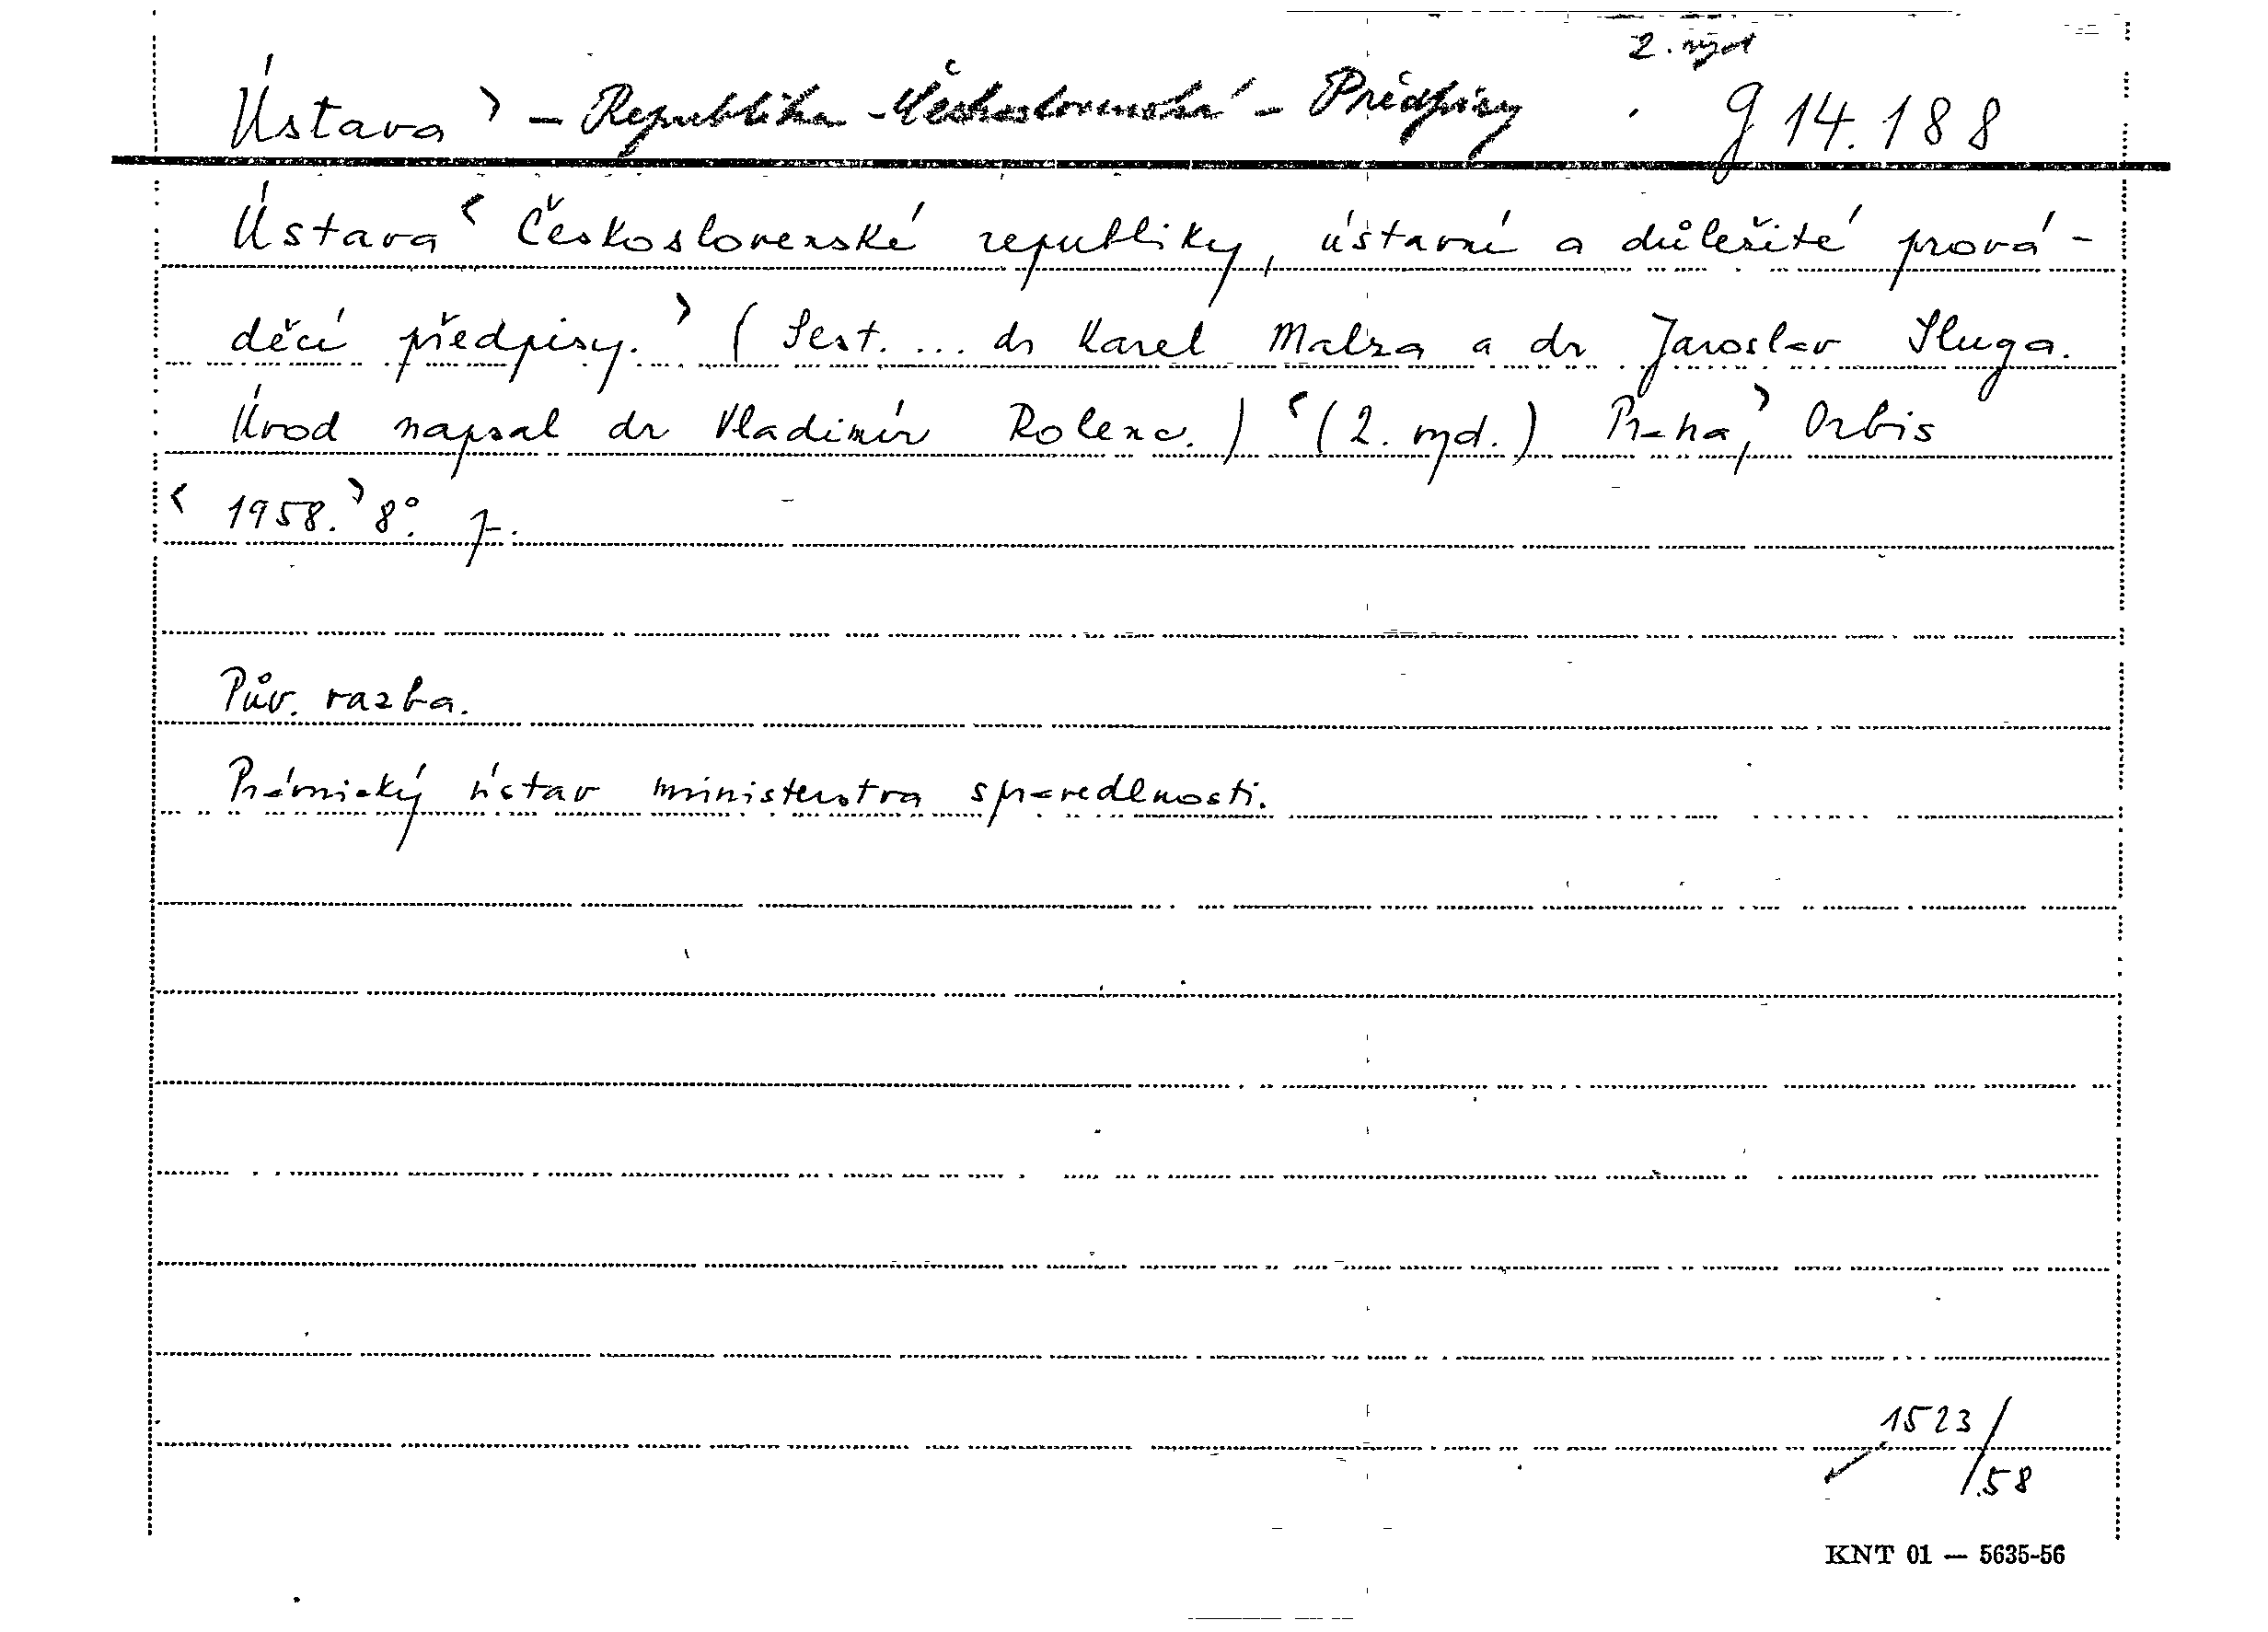 2. vyd
Ústava > – Republika Československá – Předpisy g 14.188
Ústava < Československé republiky, ústavní a důležité prová-
děcí předpisy. > ( Sest. ... dr Karel Malza a dr Jaroslav Sluga.
Úvod napsal dr Vladimír Rolenc. ) < (2. vyd.) Praha, > Orbis
< 1958. > 8°.
Pův. vazba.
Právnický ústav ministerstva spravedlnosti.
1523/
/58
KNT 01 — 5635-56